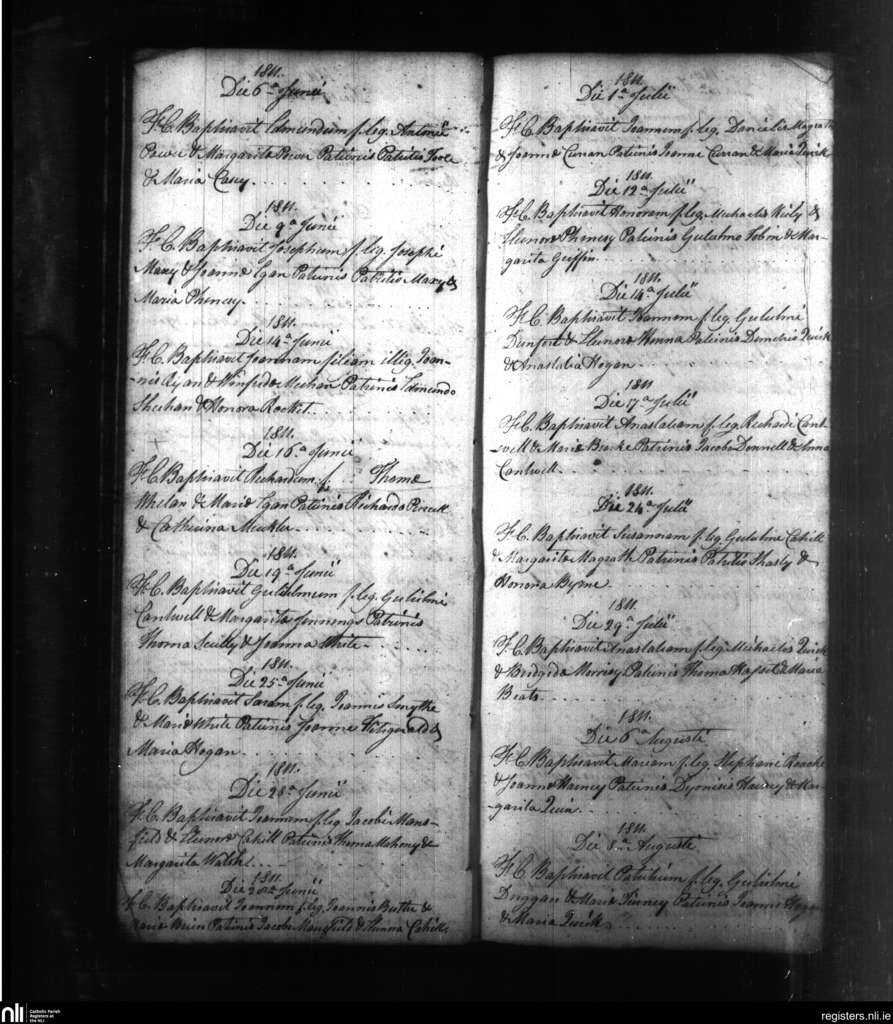 1811.
Die 6a Junii
F. C. Baptizavit Edmundum f. leg.
Power & Margarita Power Patrinis Patritio Toole
& Maria Casey.
1811.
Die 9a Junii
F. C. Baptizavit Josephum f. leg. Josephi
Maxy & Joanna Egan Patrinis Patritio Maxy &
Maria Phency.
1811.
Die 14a Junii
F. C. Baptizavit Joannam filiam illig. Joan-
nis Ryan & Winifrida Meehan Patrinis Edmundo
Sheehan & Honora Rocket.
1811.
Die 16a Junii
F. C. Baptizavit Richardum f. Thoma
Whelan & Maria Egan Patrinis Richardo
& Catherina
1811.
Die 19a Junii
F. C. Baptizavit Gulielmum f. leg. Gulielmi
Cantwell & Margarita Jennengs Patrinis
Thoma Scully & Joanna White.
1811.
Die 25a Junii
F. C. Baptizavit Saram f. leg. Joannis Smythe
& Maria White Patrinis Joanne Fitzgerald &
Maria Hogan.
1811.
Die 28a Junii
F. C. Baptizavit Joannam f. leg. Jacobi Mans-
field & Elenora Cahill Patrinis Thoma Mahony &
Margarita Walsh.
1811.
Die 28a Junii
F. C. Baptizavit Joannem f. leg. Joannis Butler &
Maria Brien Patrinis Jacobo Mansfield & Cahill
1811.
Die 1a Julii
F. C. Baptizavit Joannem f. leg. Danielis Magrath
& Joanna Curran Patrinis Joanne Curran & Maria Quirk
1811.
Die 12a Julii
F. C. Baptizavit Honoram f. leg. Michaelis Kiely &
Elenora Phency Patrinis Gulielmo Tobin & Mar-
garita Griffin.
1811.
Die 14a Julii
F. C. Baptizavit Joannem f. leg. Gulielmi
Dunfort & Elenora Patrinis Demetrio Quirk
& Anastatia Hogan.
1811
Die 17a Julii
F. C. Baptizavit Anastatiam f. leg. Richardi Cant-
well & Maria Burke Patrinis Jacobo Donnell & Anna
Cantwell.
1811.
Die 24a Julii
F. C. Baptizavit Susannam f. leg. Gulielmi Cahill
& Margarita Magrath Patrinis Patritio &
Honora Byrne
1811.
Die 29a Julii
F. C. Baptizavit Anastatiam f. leg. Michaelis Quirk
& Bridgida Morrisy Patrinis Thoma & Maria
Beats.
1811.
Die 6a Augusti
F. C. Baptizavit Mariam f. leg. Stephani Rourke
& Joanna Hanney Patrinis Dyonisio Hanney & Mar-
garita Quin.
1811.
Die 8a Augusti
F. C. Baptizavit Patritium f. leg. Gulielmi
Duggan & Maria Finney Patrinis Joanne
& Maria Quirk
nli
Catholic Parish
Registers at
the NLI
registers.nli.ie